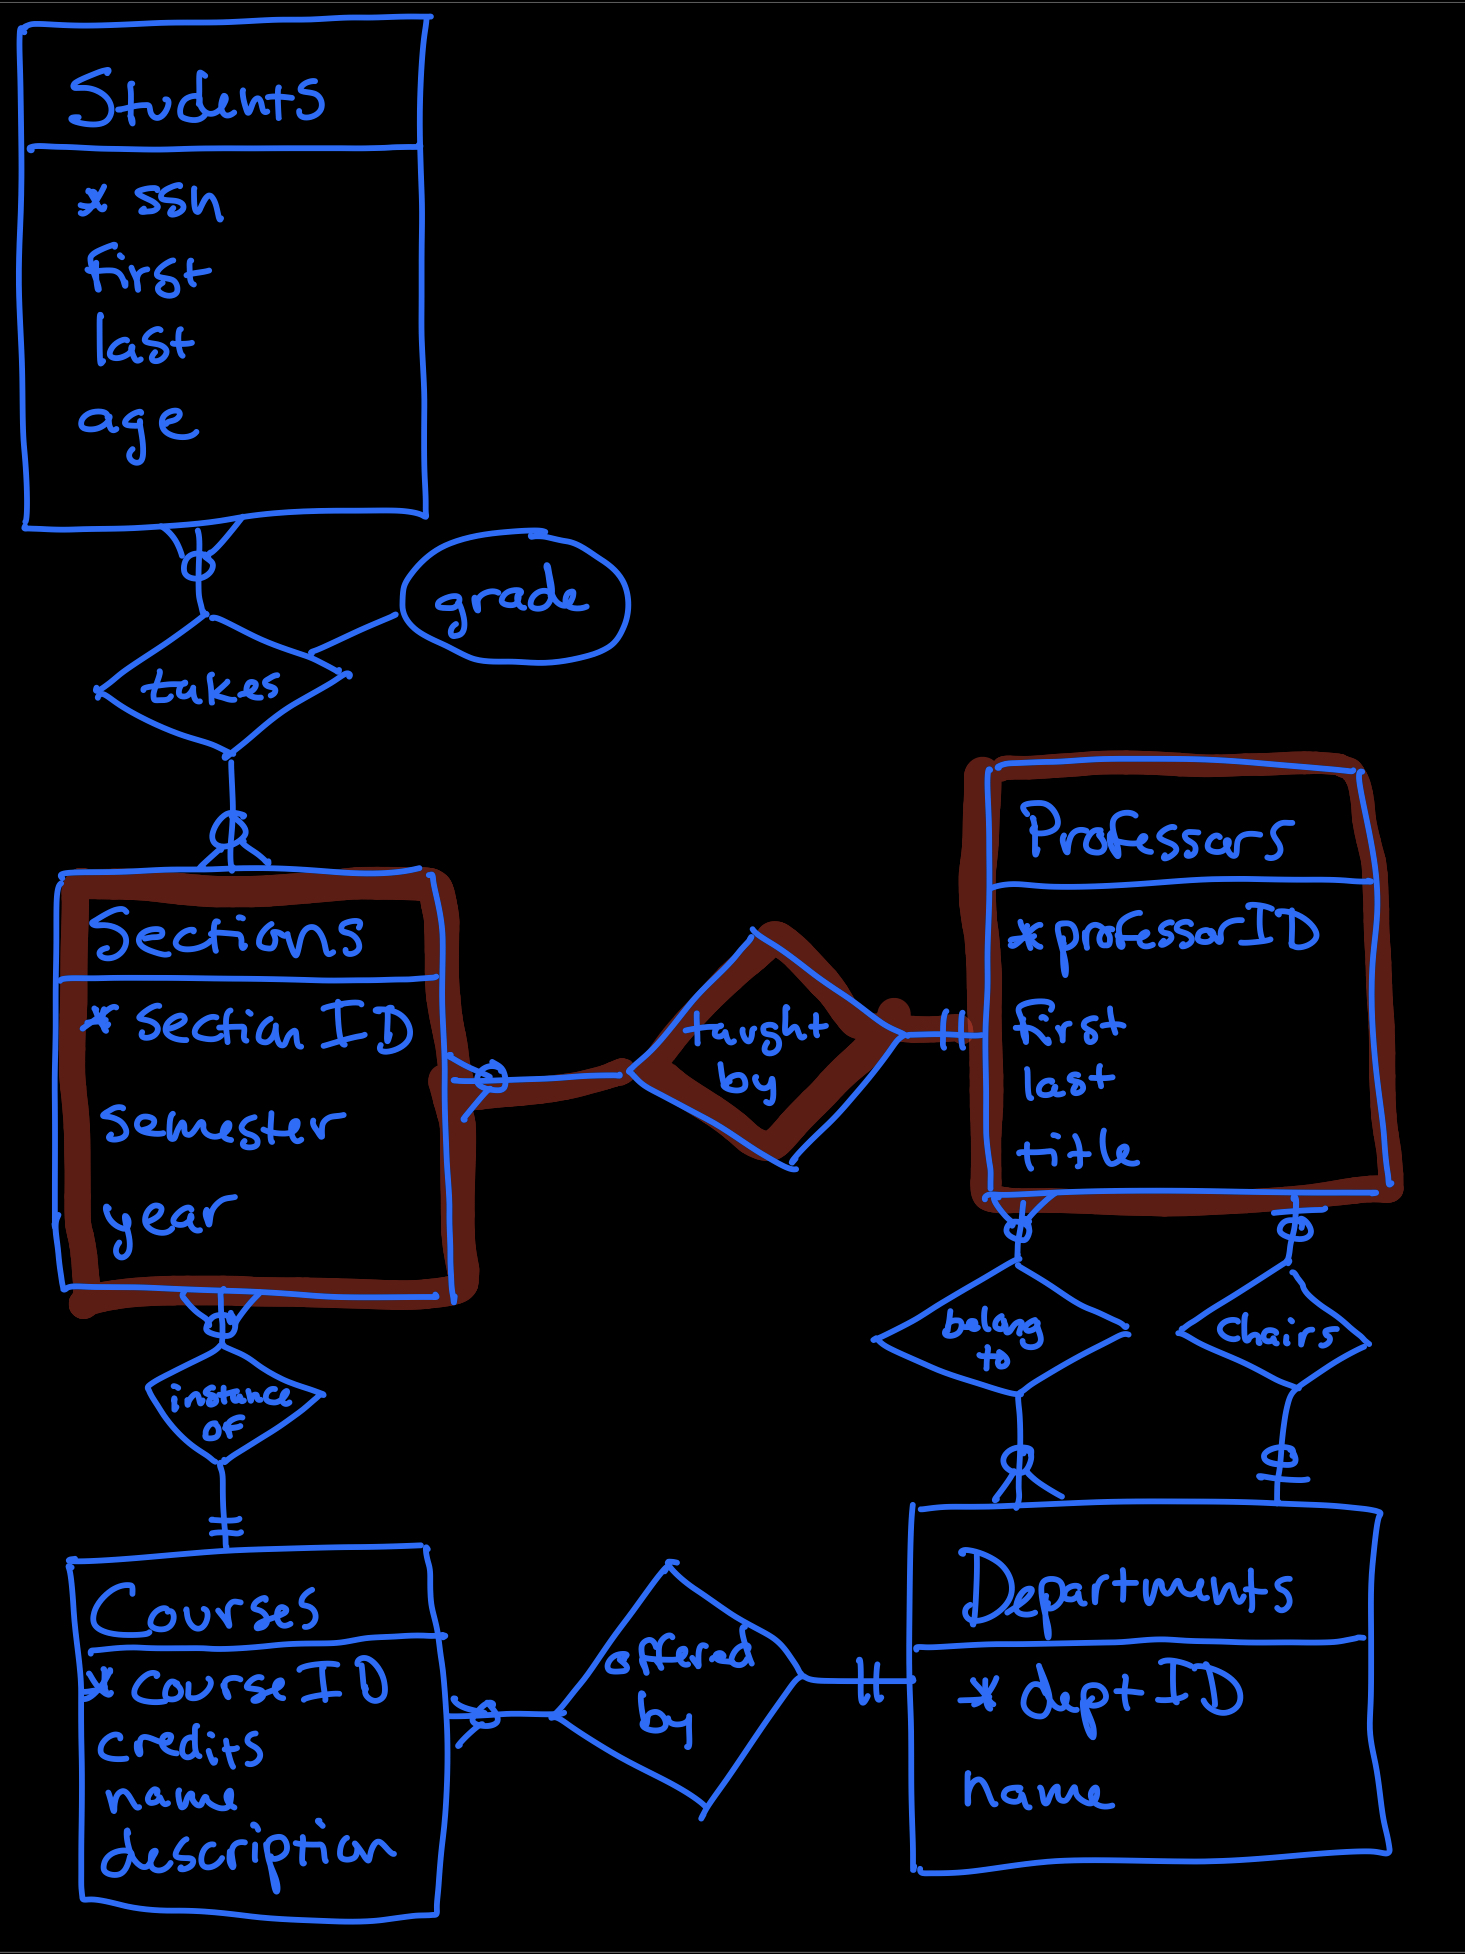 Students
* ssn
first
last
age
grade
takes
Sections
* section ID
semester
year
taught
by
Professors
* professorID
first
last
title
belong
to
Chairs
instance
of
Courses
* course ID
credits
name
description
offered
by
Departments
* dept ID
name